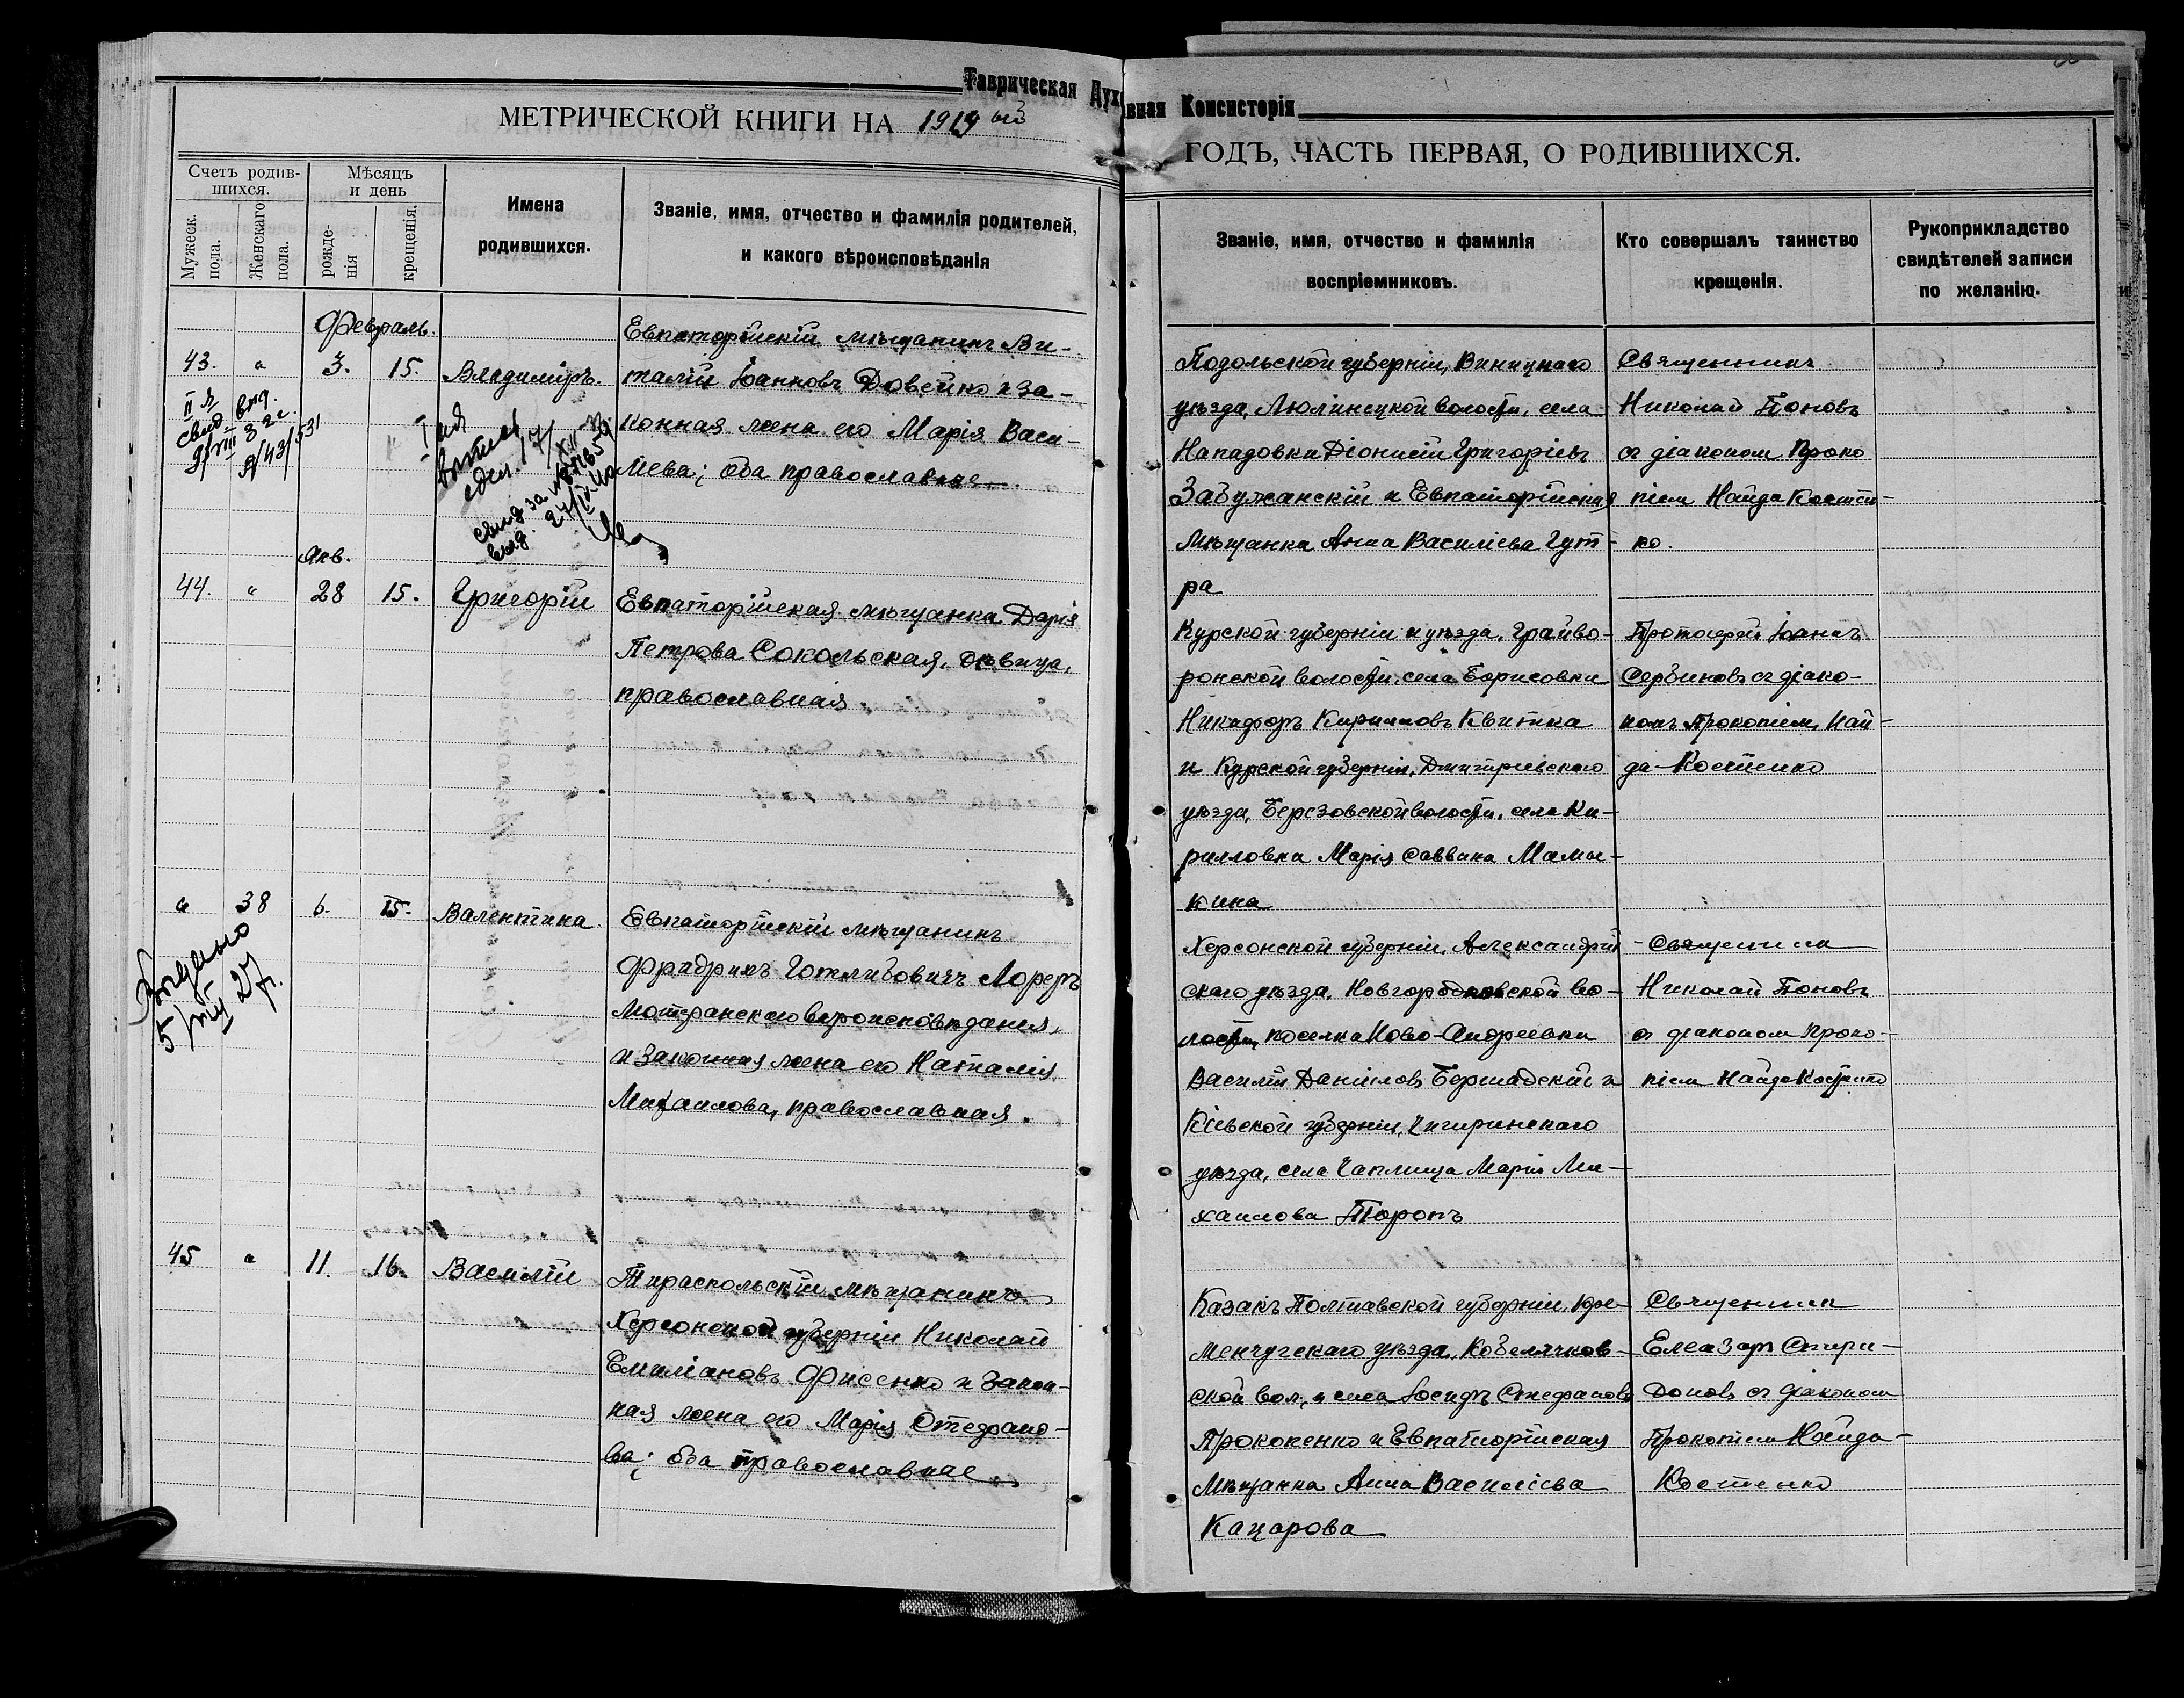 Таврическая Духовная Консисторія
МЕТРИЧЕСКОЙ КНИГИ НА 1919 ый
ГОДЪ, ЧАСТЬ ПЕРВАЯ, О РОДИВШИХСЯ.
Счетъ родив-
шихся.
Мужеск.
пола.
Женскаго
пола.
Мѣсяцъ
и день
рожде-
нія
крещенія.
Имена
родившихся.
Званіе, имя, отчество и фамилія родителей,
и какого вѣроисповѣданія
Званіе, имя, отчество и фамилія
воспріемниковъ.
Кто совершалъ таинство
крещенія.
Рукоприкладство
свидѣтелей записи
по желанію.
Февраль.
43. " 3. 15. Владиміръ.
Евпаторійскій мѣщанинъ Ви-
талій Іоанновъ Довейко и за-
конная жена его Марія Васи-
лева; оба православные
Подольской губерніи, Виницкаго
уѣзда, Люлинецкой волости, села
Нападовки Діонисій Григоріевъ
Забужанскій и Евпаторійская
мѣщанка Анна Василіева Гут-
ра
Священникъ
Николай Поповъ
съ діаконом Проко
піем Найда Костен-
ко.
Янв.
44. " 28 15. Григорій
Евпаторійская мѣщанка Дарія
Петрова Сокольская, дѣвица,
православная
Курской губерніи и уѣзда, Грайво-
ронской волости, села Борисовки
Никифоръ Кирилловъ Квитка
и Курской губерніи, Дмитріевскаго
уѣзда, Березовской волости, села Ки-
рилловка Марія Саввина Мамы-
кина
Протоіерей Іоаннъ
Сербиновъ съ діако-
номъ Прокопіем, Най-
да-Костенко
" 38 6. 15. Валентина.
Выдано
27 г.
Евпаторійскій мѣщанинъ
Фридрихъ Готлибовичъ Лореръ
лютеранскаго вѣроисповѣданія,
и законная жена его Наталія
Михаилова, православная.
Херсонской губерніи, Александрій-
скаго уѣзда, Новгородковской во-
лости, поселка Ново-Андреевки
Василій Даніиловъ Бершадскій и
Кіевской губерніи, Чигиринскаго
уѣзда, села Чаплища Марія Ми-
хаилова Торопъ
Священник
Николай Поповъ
съ діаконом Проко-
піем Найда Костенко
45 " 11. 16. Василій
Тираспольскій мѣщанинъ
Херсонской губерніи Николай
Емиліановъ Фисенко и закон-
ная жена его Марія Стефано-
ва; оба православные
Казакъ Полтавской губерніи, Кре-
менчугскаго уѣзда, Кобелячков-
ской вол. и села Іосифъ Стефановъ
Прокопенко и Евпаторійская
мѣщанка Анна Василіева
Кацарова
Священник
Елеазаръ Спири-
доновъ съ діаконом
Прокопіем Найда-
Костенко